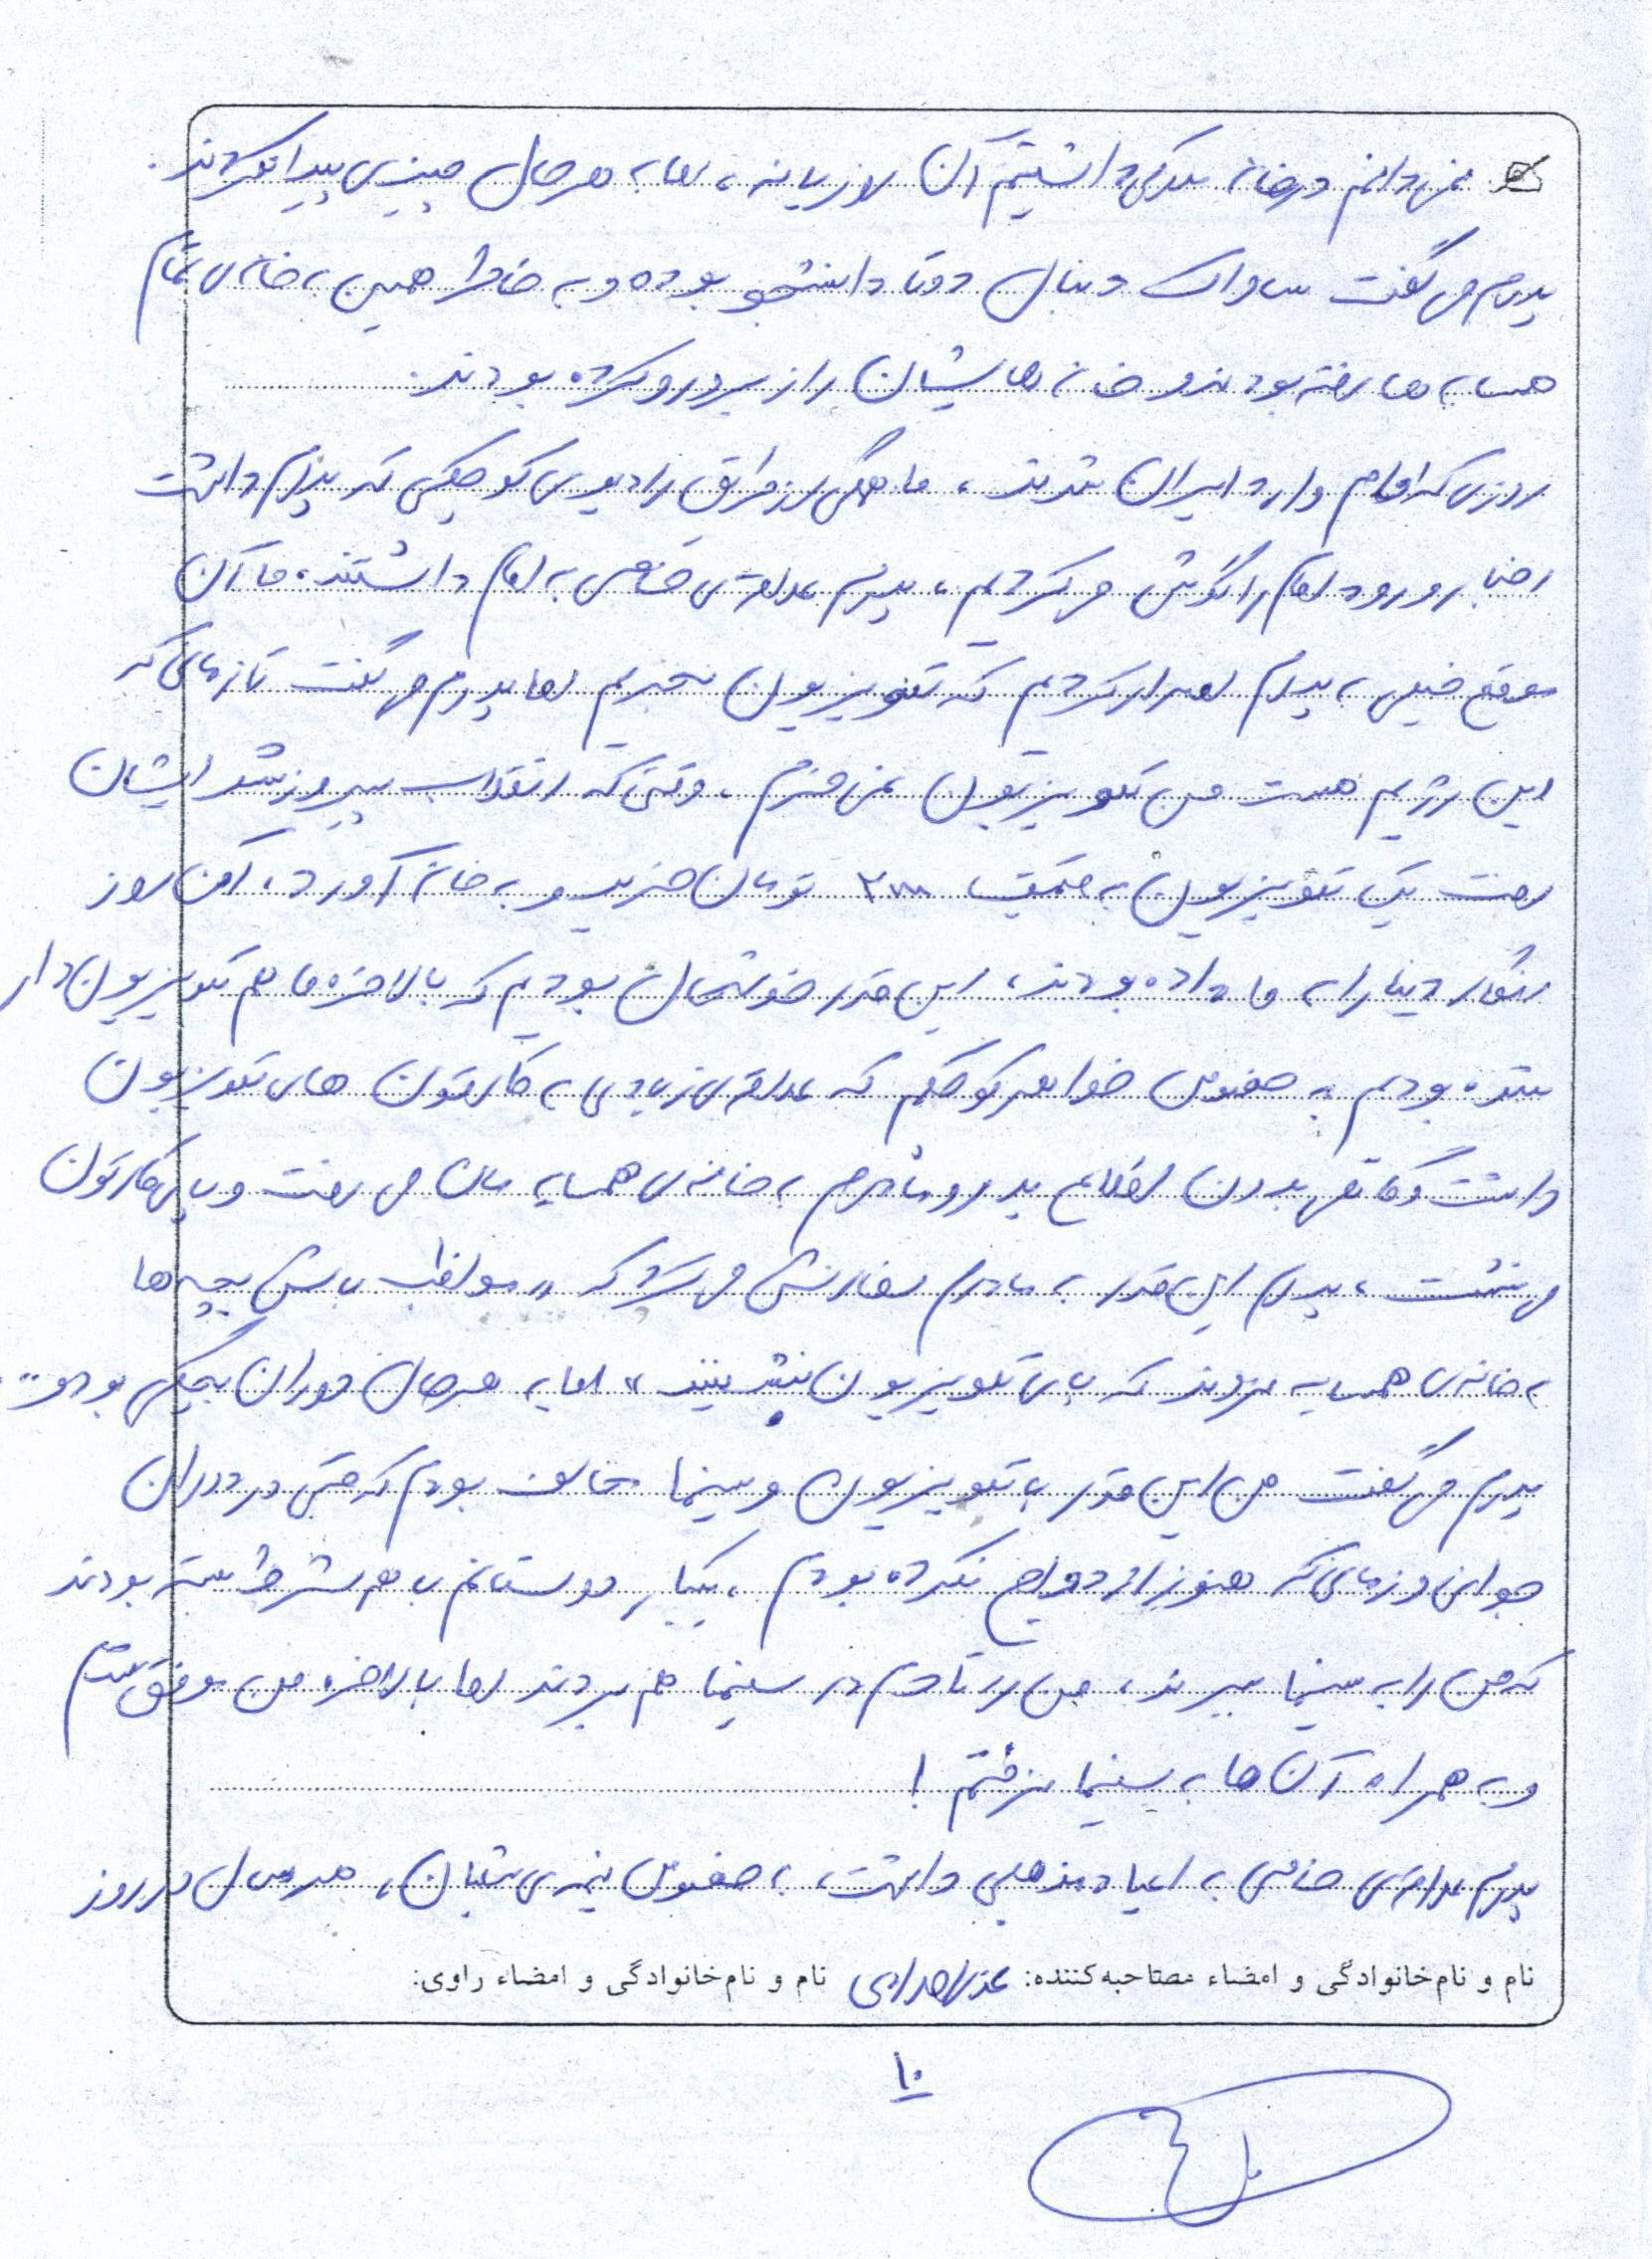 نمی‌دانم در خانه مدرکی داشتیم آن ، اما به هر حال چیزی پیدا نکردند.
پدرم می‌گفت ساواک دنبال دوتا دانشجو بوده و به خاطر همین به خانه‌ی تمام
همسایه‌ها رفته بودند و خانه‌هایشان را زیر و رو کرده بودند.
روزی که امام وارد ایران شدند، ما همگی از طریق رادیوی کوچکی که پدرم داشت
اخبار ورود امام را گوش می‌کردیم، پدرم علاقه‌ی خاصی به امام داشتند. ما آن
موقع خیلی به پدرم اصرار کردیم که تلویزیون بخریم اما پدرم می‌گفت تا زمانی که
این رژیم هست من تلویزیون نمی‌خرم. وقتی که انقلاب پیروز شد ایشان
رفت یک تلویزیون به قیمت تومان خرید و به خانه آورد، آن روز
انگار دنیا را به ما داده بودند، این قدر خوشحال بودیم که بالاخره ما هم تلویزیون‌دار
شده بودیم به خصوص خواهر کوچکم که علاقه‌ی زیادی به کارتون های تلویزیون
داشت و گاهی بدون اطلاع پدر و مادرم به خانه‌ی همسایه مان می‌رفت و پای کارتون
می‌نشست، پدرم این قدر به مادرم سفارش می‌کرد که «مواظب باش بچه‌ها
به خانه‌ی همسایه نروند که پای تلویزیون بنشینند» اما به هر حال دوران بچگی بود و...
پدرم می‌گفت من این قدر با تلویزیون و سینما مخالف بودم که حتی در دوران
جوانی و زمانی که هنوز ازدواج نکرده بودم، یکبار دوستانم با هم شرط بسته بودند
که من را به سینما ببرند، من را تا دم در سینما هم بردند اما بالاخره من موفق شدم
و به همراه آن‌ها به سینما نرفتم!
پدرم علاقه‌ی خاصی به اعیاد مذهبی داشت، به خصوص نیمه‌ی شعبان، هر سال در روز
نام و نام‌خانوادگی و امضاء مصاحبه‌کننده: نام و نام‌خانوادگی و امضاء راوی:
۱۰